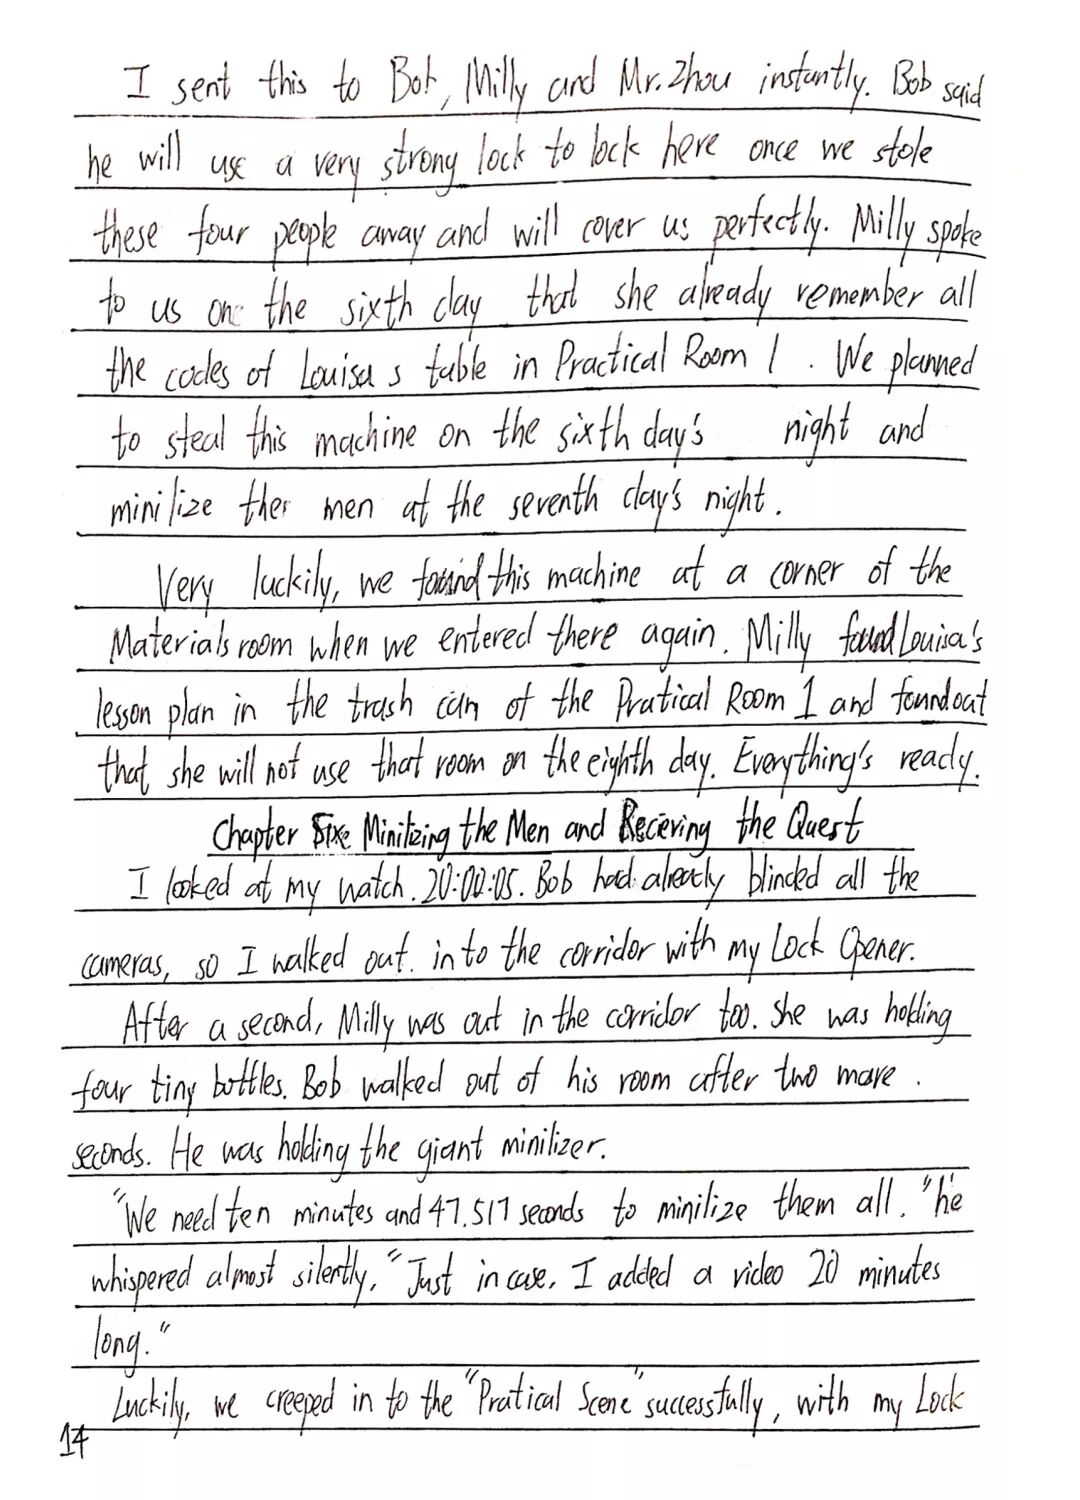 I sent this to Bob, Milly and Mr. Zhou instantly. Bob said
he will use a very strong lock to lock here once we stole
these four people away and will cover us perfectly. Milly spoke
to us one the sixth day that she already remember all
the codes of Louisa s table in Practical Room 1. We planned
to steal this machine on the sixth day's night and
minilize ther men at the seventh day's night.
Very luckily, we found this machine at a corner of the
Materials room when we entered there again. Milly found Louisa's
lesson plan in the trash can of the Pratical Room 1 and found out
that she will not use that room on the eighth day. Everything's ready.
Chapter Minilizing the Men and Recieving the Quest
I looked at my watch. 20:00:05. Bob had already blinded all the
cameras, so I walked out. in to the corridor with my Lock Opener.
After a second, Milly was out in the corridor too. She was holding
four tiny bottles. Bob walked out of his room after two more.
seconds. He was holding the giant minilizer.
"We need ten minutes and 47.517 seconds to minilize them all." he
whispered almost silently, "Just in case, I added a video 20 minutes
long."
Luckily, we creeped in to the "Pratical Scene" successfully, with my Lock
14